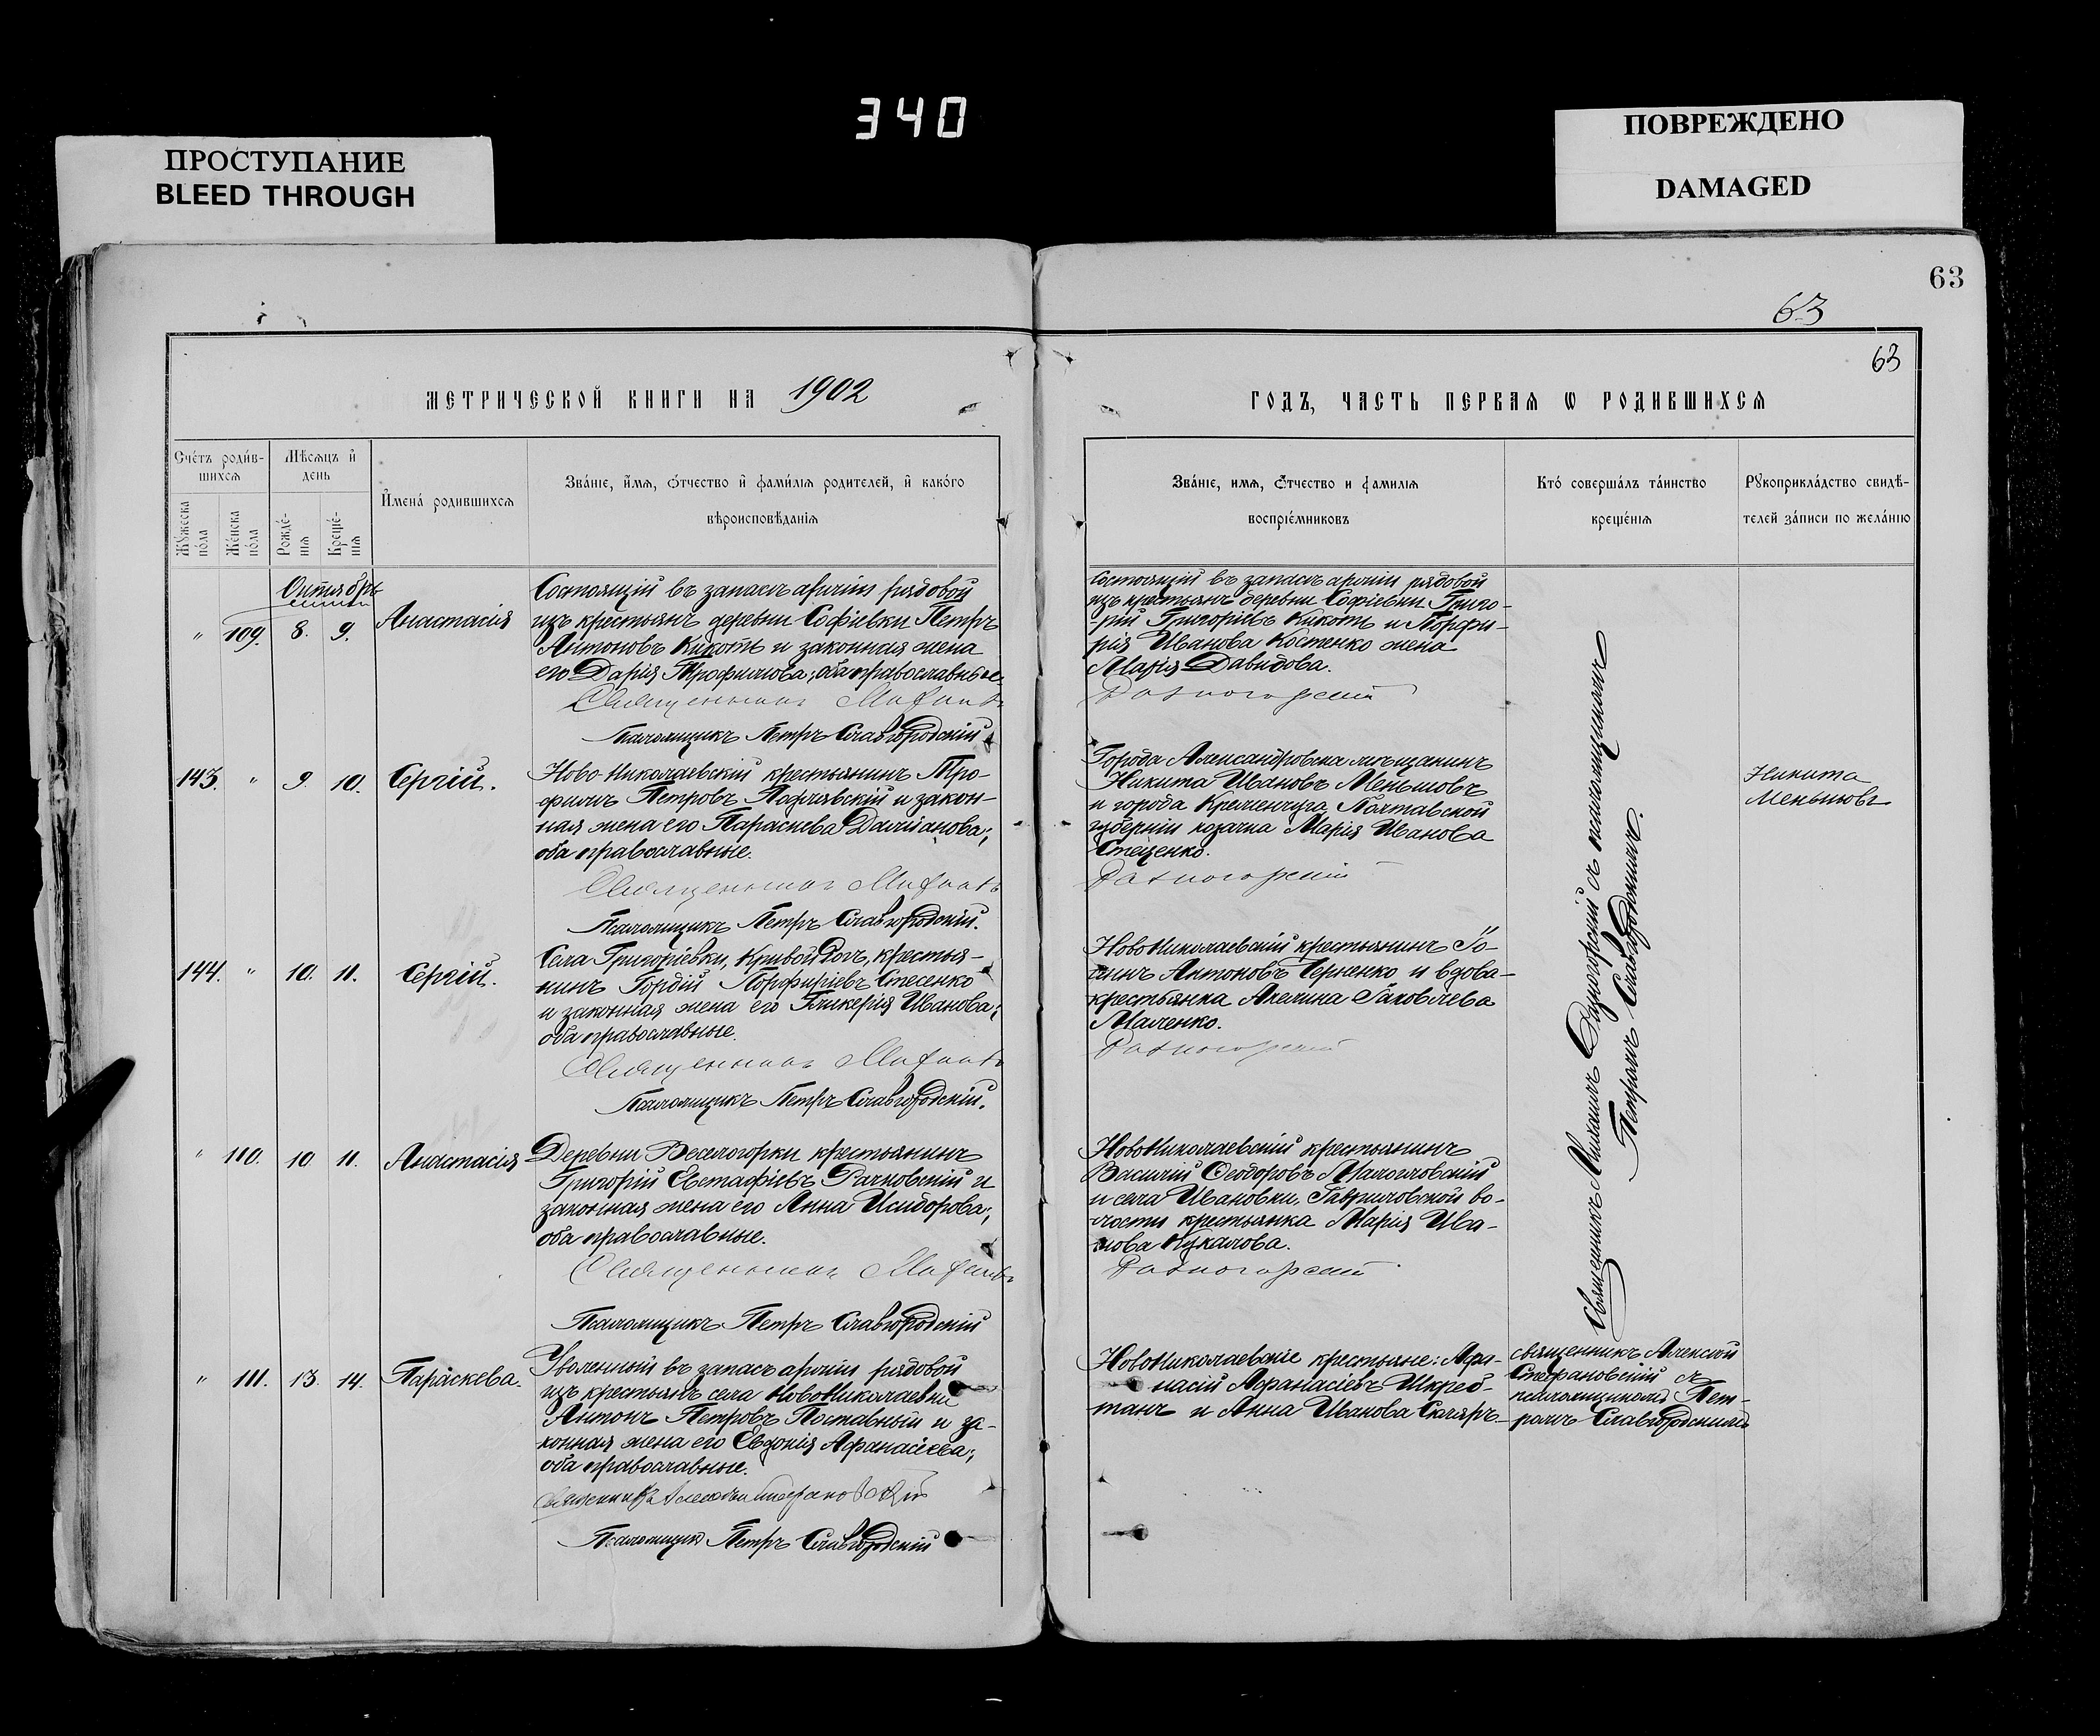 340
ПРОСТУПАНИЕ
BLEED THROUGH
ПОВРЕЖДЕНО
DAMAGED
63
63
63
МЕТРИЧЕСКОЙ КНИГИ НА 1902
ГОДЪ, ЧАСТЬ ПЕРВАЯ Ѡ РОДИВШИХСЯ
Счетъ родив-
шихся
Мѣсяцъ и
день
Имена родившихся
Званіе, имя, отчество и фамилія родителей, и какого
вѣроисповѣданія
Мужеска
пола
Женска
пола
Рожде-
нія
Креще-
нія
Званіе, имя, отчество и фамилія
воспріемниковъ
Кто совершалъ таинство
крещенія
Рукоприкладство свидѣ-
телей записи по желанію
Октябрь
" 109. 8. 9. Анастасія
Состоящій въ запасѣ арміи рядовой
изъ крестьянъ деревни Софіевки Петръ
Антоновъ Кикоть и законная жена
его Дарія Трофимова; оба православные.
Священникъ
Псаломщикъ Петръ Славгородскій
Состоящій въ запасѣ арміи рядовой
изъ крестьянъ деревни Софіевки Григо-
рій Григоріевъ Кикоть и Порфи-
рія Иванова Костенко жена
Марія Давидова.
Разногорскій
143. " 9. 10. Сергій.
Ново-Николаевскій крестьянинъ Тро-
фимъ Петровъ и закон-
ная жена его Параскева Даміанова;
оба православные.
Священникъ
Псаломщикъ Петръ Славгородскій.
Города Александровска мѣщанинъ
Никита Ивановъ Меньшовъ
и города Кременчуга Полтавской
губерніи козачка Марія Иванова
Стеценко.
Разногорскій
Никита
Меньшовъ
144. " 10. 11. Сергій.
Села Григоріевки, Кривой Рогъ, крестья-
нинъ Гордій Порфиріевъ Стесенко
и законная жена его Гликерія Иванова;
оба православные.
Священникъ
Псаломщикъ Петръ Славгородскій.
НовоНиколаевскій крестьянинъ Іо-
Антоновъ Черненко и вдова-
крестьянка Акилина Іаковлева
Маленко.
Разногорскій
" 110. 10 11. Анастасія
Деревни Веселогорки крестьянинъ
Григорій Евстафіевъ Рачковскій и
законная жена его Анна Исидорова;
оба православные.
Священникъ
Псаломщикъ Петръ Славгородскій
НовоНиколаевскій крестьянинъ
Василій Ѳеодоровъ Малословскій
и села Ивановки, Гавриловской во-
лости крестьянка Марія Ива-
нова Кукалова.
Разногорскій
Священникъ Михаилъ Разногорскій съ псаломщикомъ
Петромъ Славгородскимъ.
" 111. 13. 14. Параскева.
Уволенный въ запасъ арміи рядовой
изъ крестьянъ села НовоНиколаевки
Антонъ Петровъ Поставный и за-
конная жена его Евдокія Афанасіева;
оба православные.
Священникъ Алексѣй Стефановскій
Псаломщикъ Петръ Славгородскій
НовоНиколаевскіе крестьяне: Афа-
насій Афанасіевъ Шкреб-
танъ и Анна Иванова Скляръ
священникъ Алексѣй
Стефановскій съ
псаломщикомъ Пет-
ромъ Славгородскимъ